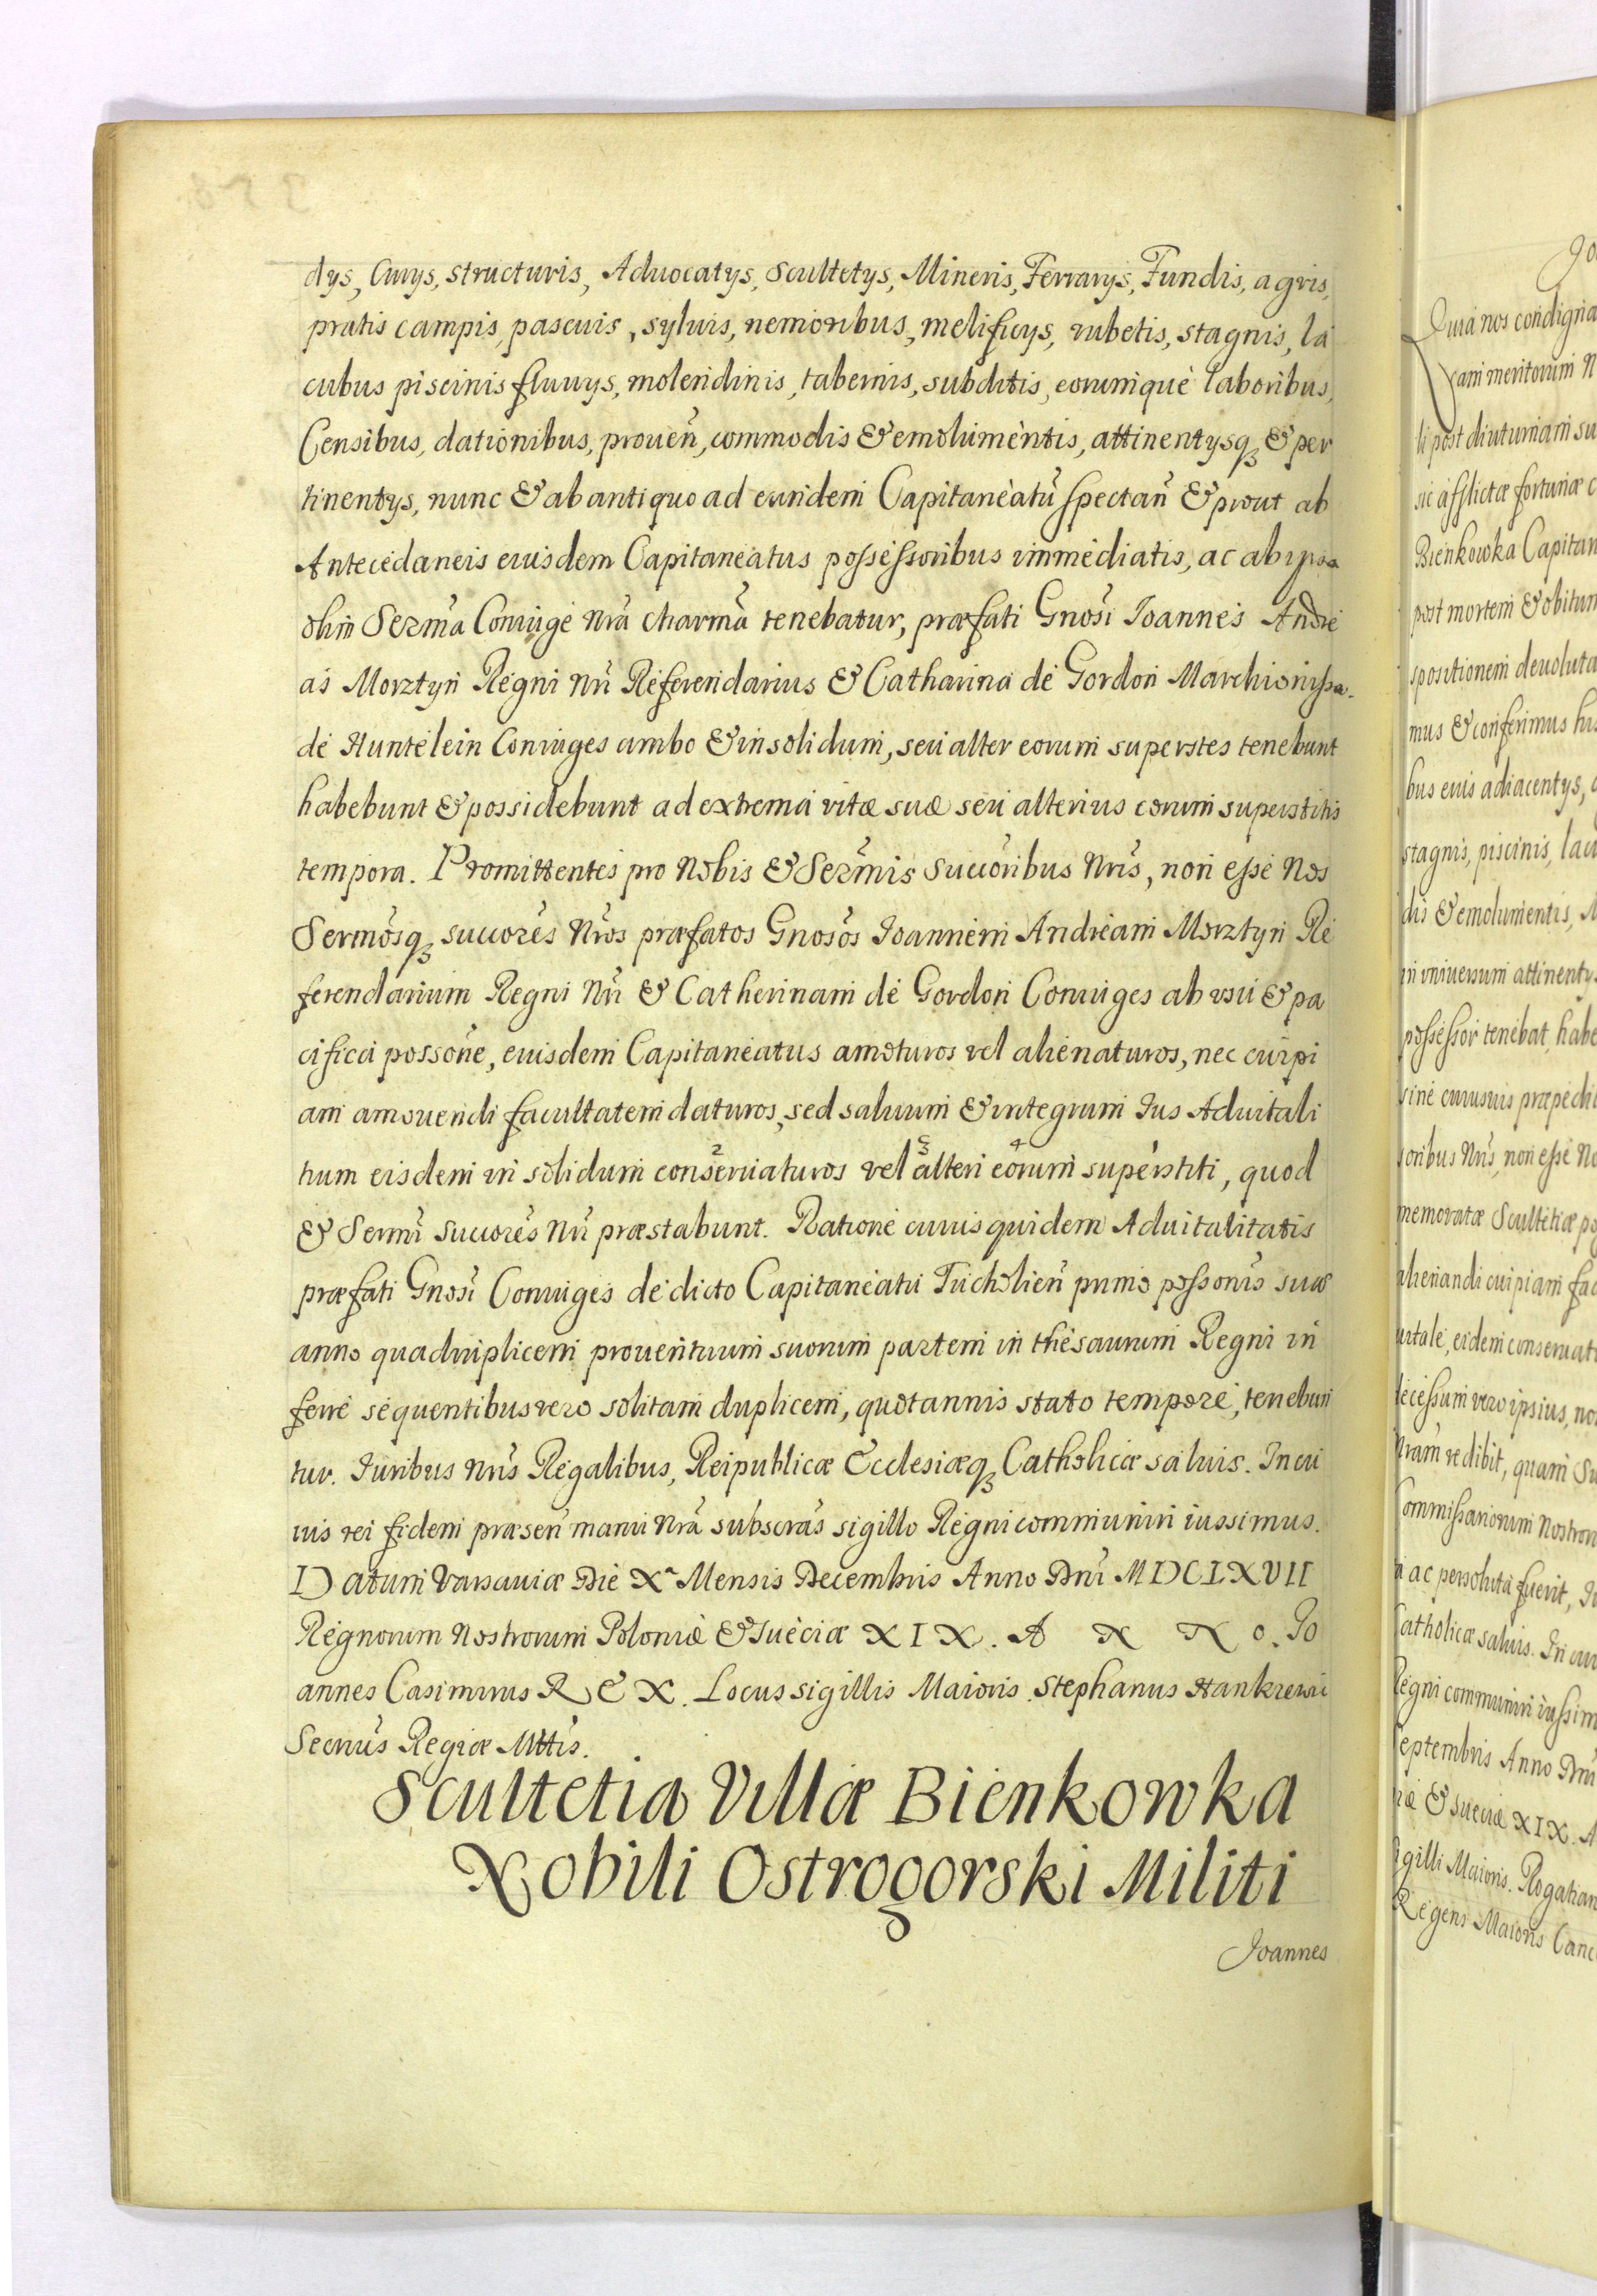 dys, Curys, structuris, Aduocatys, Scultetys, Mineris, Ferrarys, Fundis, agris,
pratis campis, pascuis, syluis, nemoribus, melificys, rubetis, stagnis, la
cubus piscinis fluuys, molendinis, tabernis, subditis, eorumque laboribus,
Censibus, dationibus, prouen̄, commodis & emolumentis, attinentysq3 & per
tinentys, nunc & ab antiquo ad eundem Capitaneatū spectan̄ & prout ab
Antecedaneis eiusdem Capitaneatus possessoribus immediatis, ac ab ipsa
olim Serm̄a Coniuge nr̄a charm̄a tenebatur, præfati Gnōsi Ioannes Andre
as Morztyn Regni nr̄i Referendarius & Catharina de Gordon Marchionissa
de Huntelein Coniuges ambo & insolidum, seu alter eorum superstes tenebunt
habebunt & possidebunt ad extrema vitæ suæ seu alterius eorum superstitis
tempora. Promittentes pro Nobis & Serm̄is Succōribus Nr̄is, non esse Nos
Serm̄osq3 succōres Nr̄os præfatos Gnōsos Ioannem Andream Morztyn Re
ferendarium Regni Nr̄i & Catherinam de Gordon Coniuges ab vsu & pa
cifica possōne, eiusdem Capitaneatus amoturos vel alienaturos, nec cuipi
am amouendi facultatem daturos, sed saluum & integrum Ius Aduitali
tium eisdem in solidum conseruaturos vel alteri eorum superstiti, quod
& Serm̄i Succōres Nr̄i præstabunt. Ratione cuius quidem Aduitalitatis
præfati Gnōsi Coniuges de dicto Capitaneatu Tucholien̄ primo possōnis suæ
anno quadruplicem prouentuum suorum partem in thesaurum Regni in
ferre sequentibus vero solitam duplicem, quotannis stato tempore, tenebun
tur. Iuribus Nr̄is Regalibus, Reipublicæ Ecclesiæq3 Catholicæ saluis. In cu
ius rei fidem præsen̄ manu Nr̄a subscrās sigillo Regni communiri iussimus.
Datum Varsauiæ Die Xa Mensis Decembris Anno Dn̄i MDCLXVII
Regnorum Nostrorum Poloniæ & Sueciæ XIX. A N N o. Io
annes Casimirus R E X. Locus sigillis Maioris. Stephanus Hankiewi
Secriūs Regiæ Mttis.
Scultetia Villæ Bienkowka
Nobili Ostrogorski Militi
Joannes
Quia nos condigna
li post diuturnam su
sic afflictæ fortunæ c
Bienkowka Capitan
post mortem & obitum
spositionem deuoluta
mus & conferimus his
bus eius adiacentys,
stagnis, piscinis, lacu
dis & emolumentis,
in vniuersum attinentys
possessor tenebat, habe
sine cuiusuis præpedi
soribus Nr̄is, non esse No
memoratæ Scultetiæ po
alienandi cuipiam fac
uitale, eidem conseruat
decessum vero ipsius, no
Nram redibit, quam Su
Commissariorum Nostror
a ac persoluta fuerit, Iu
Catholicæ saluis. In cui
Regni communiri iussim
Septembris Anno Dn̄i
niæ & Sueciæ XIX. A
Sigilli Maioris. Rogatian
Regens Maioris Canc